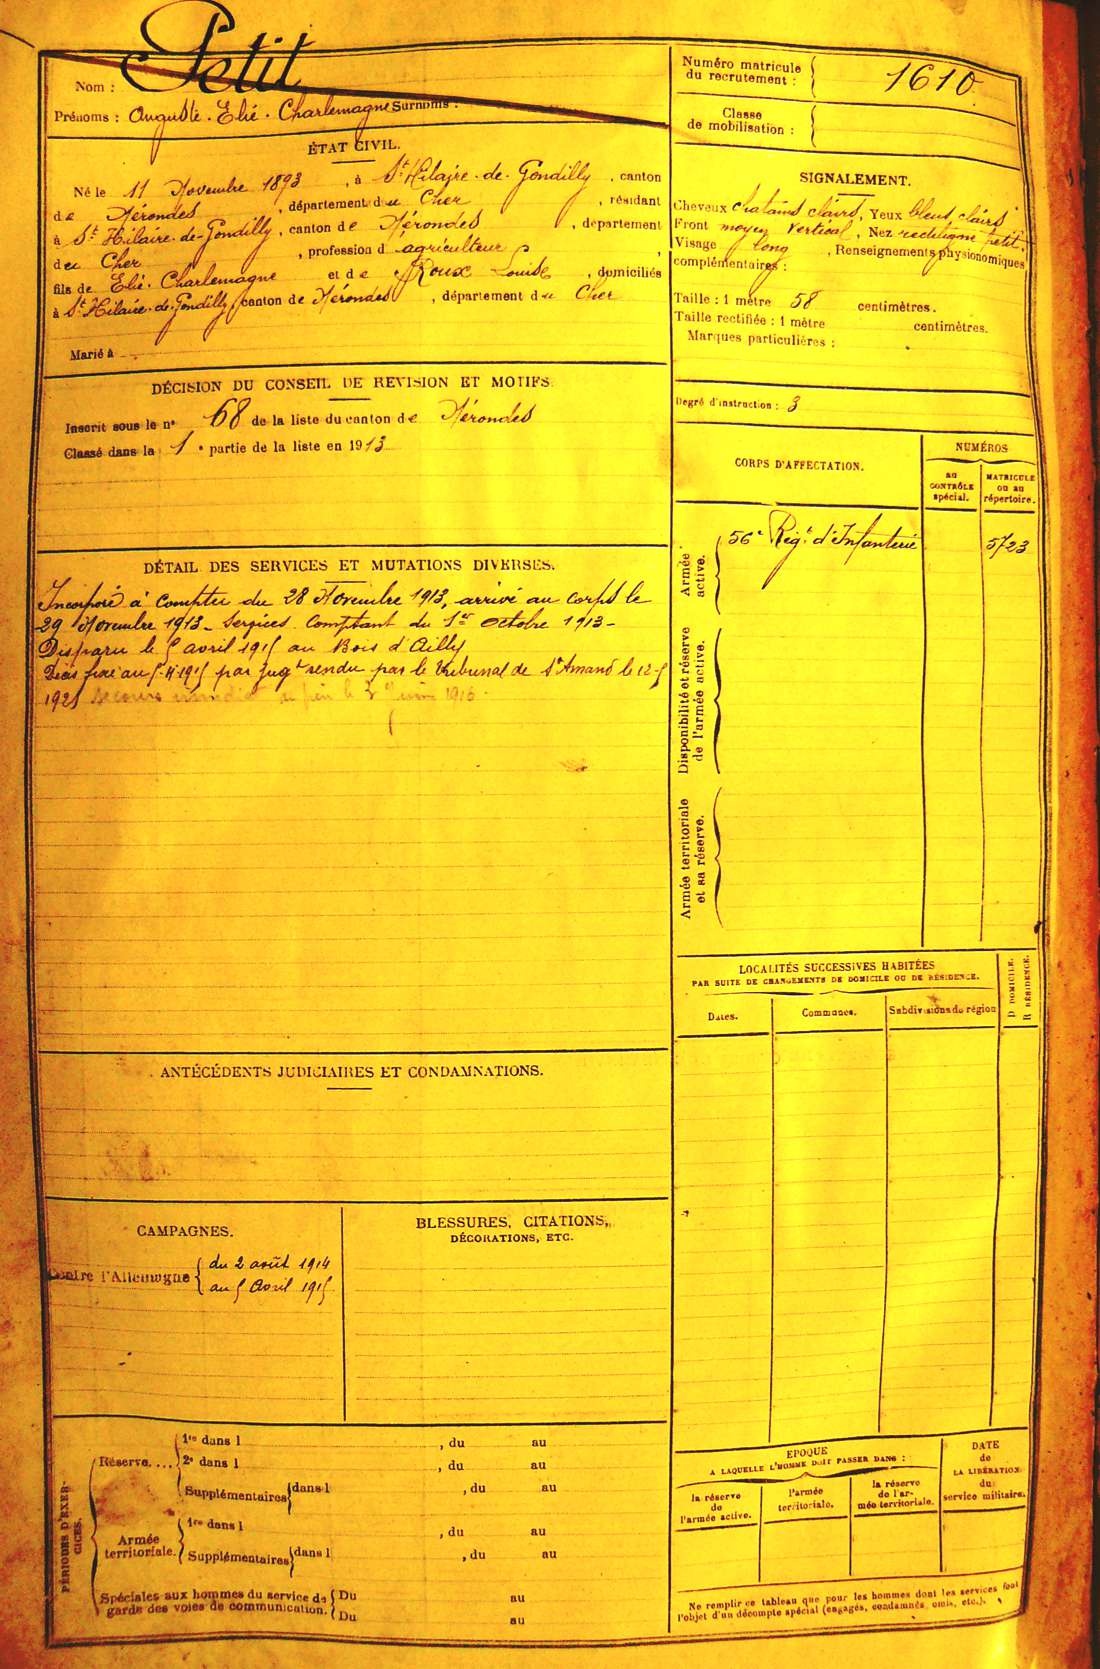 Nom : Petit
Prénoms : Auguste. Elie. Charlemagne Surnoms :
ÉTAT CIVIL.
Né le 11 Novembre 1893, à St Hilaire-de-Gondilly, canton
de Nérondes, département du Cher, résidant
à St Hilaire-de-Gondilly, canton de Nérondes, département
du Cher, profession d agriculteur
fils de Elie Charlemagne et de Roux Louise, domiciliés
à St Hilaire-de-Gondilly, canton de Nérondes, département du Cher
Marié à
DÉCISION DU CONSEIL DE REVISION ET MOTIFS.
Inscrit sous le n° 68 de la liste du canton de Nérondes
Classé dans la 1e partie de la liste en 1913
DÉTAIL DES SERVICES ET MUTATIONS DIVERSES.
Incorporé à compter du 28 Novembre 1913, arrivé au corps le
29 Novembre 1913 - Services Comptant du 1er Octobre 1913 -
Disparu le 5 avril 1915 au Bois d'Ailly
Décès fixé au 5-4-1915 par Jugt rendu par le Tribunal de St Amand le 12-5
1921 Secours le 1916
ANTÉCÉDENTS JUDICIAIRES ET CONDAMNATIONS.
CAMPAGNES.
Contre l'Allemagne { du 2 août 1914
au 5 Avril 1915
BLESSURES, CITATIONS,
DÉCORATIONS, ETC.
PÉRIODES D'EXERCICES.
Réserve.... 1re dans l , du au
2e dans l , du au
Supplémentaires dans l , du au
Armée territoriale. 1re dans l , du au
Supplémentaires dans l , du au
Spéciales aux hommes du service de Du au
garde des voies de communication. Du au
Numéro matricule
du recrutement : 1610
Classe
de mobilisation :
SIGNALEMENT.
Cheveux chatains clairs, Yeux bleus clairs
Front moyen Vertical, Nez rectiligne petit
Visage long, Renseignements physionomiques
complémentaires :
Taille : 1 mètre 58 centimètres.
Taille rectifiée : 1 mètre centimètres.
Marques particulières :
Degré d'instruction : 3
CORPS D'AFFECTATION.
NUMÉROS
au
CONTRÔLE
spécial.
MATRICULE
ou au
répertoire.
Armée
active.
56e Régt d'Infanterie 5723
Disponibilité et réserve
de l'armée active.
Armée territoriale
et sa réserve.
LOCALITÉS SUCCESSIVES HABITÉES
PAR SUITE DE CHANGEMENTS DE DOMICILE OU DE RÉSIDENCE.
Dates.
Communes.
Subdivisions de région
D DOMICILE.
R RÉSIDENCE.
EPOQUE
A LAQUELLE L'HOMME DOIT PASSER DANS :
la réserve
de
l'armée active.
l'armée
territoriale.
la réserve
de l'ar-
mée territoriale.
DATE
de
LA LIBÉRATION
du
service militaire.
Ne remplir ce tableau que pour les hommes dont les services font
l'objet d'un décompte spécial (engagés, condamnés, omis, etc.).